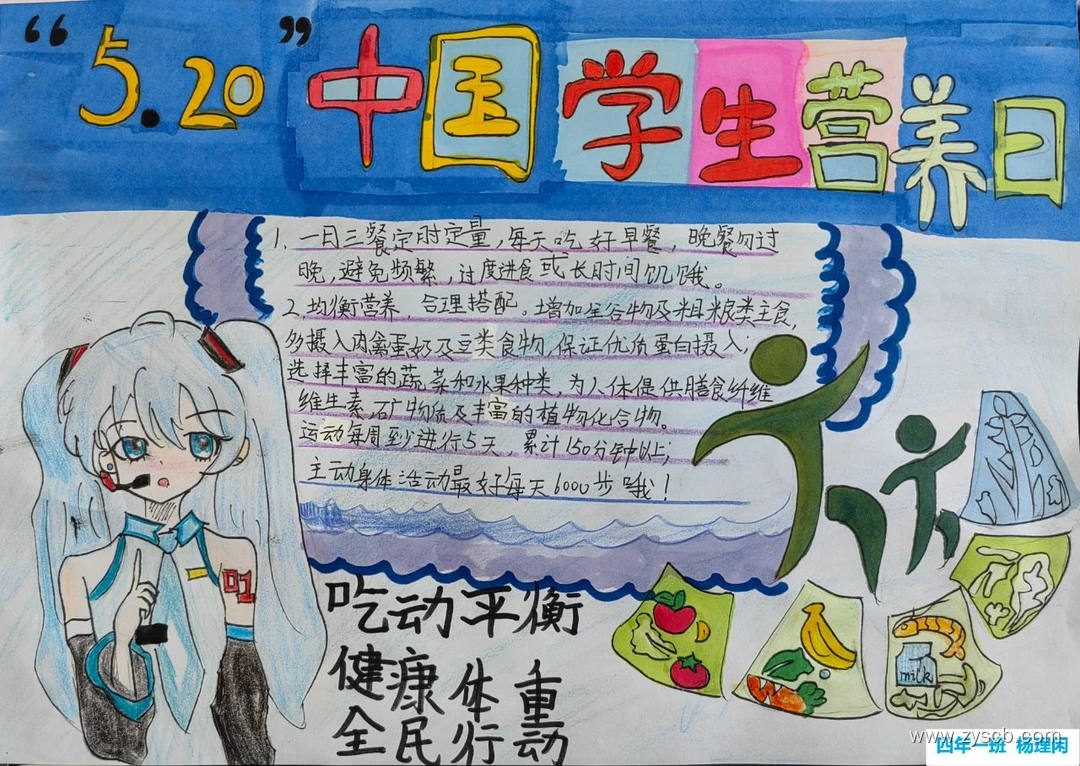 “5.20”中国学生营养日
1. 一日三餐定时定量，每天吃好早餐，晚餐勿过
晚，避免频繁，过度进食或长时间饥饿。
2. 均衡营养，合理搭配。增加全谷物及粗粮类主食，
多摄入肉禽蛋奶及豆类食物，保证优质蛋白摄入；
选择丰富的蔬菜和水果种类，为人体提供膳食纤维
维生素，矿物质及丰富的植物化合物。
运动每周至少进行5天，累计150分钟以上；
主动身体活动最好每天6000步哦！
吃动平衡
健康体重
全民行动
01
milk
www.zyscb.com
四年一班 杨理闲